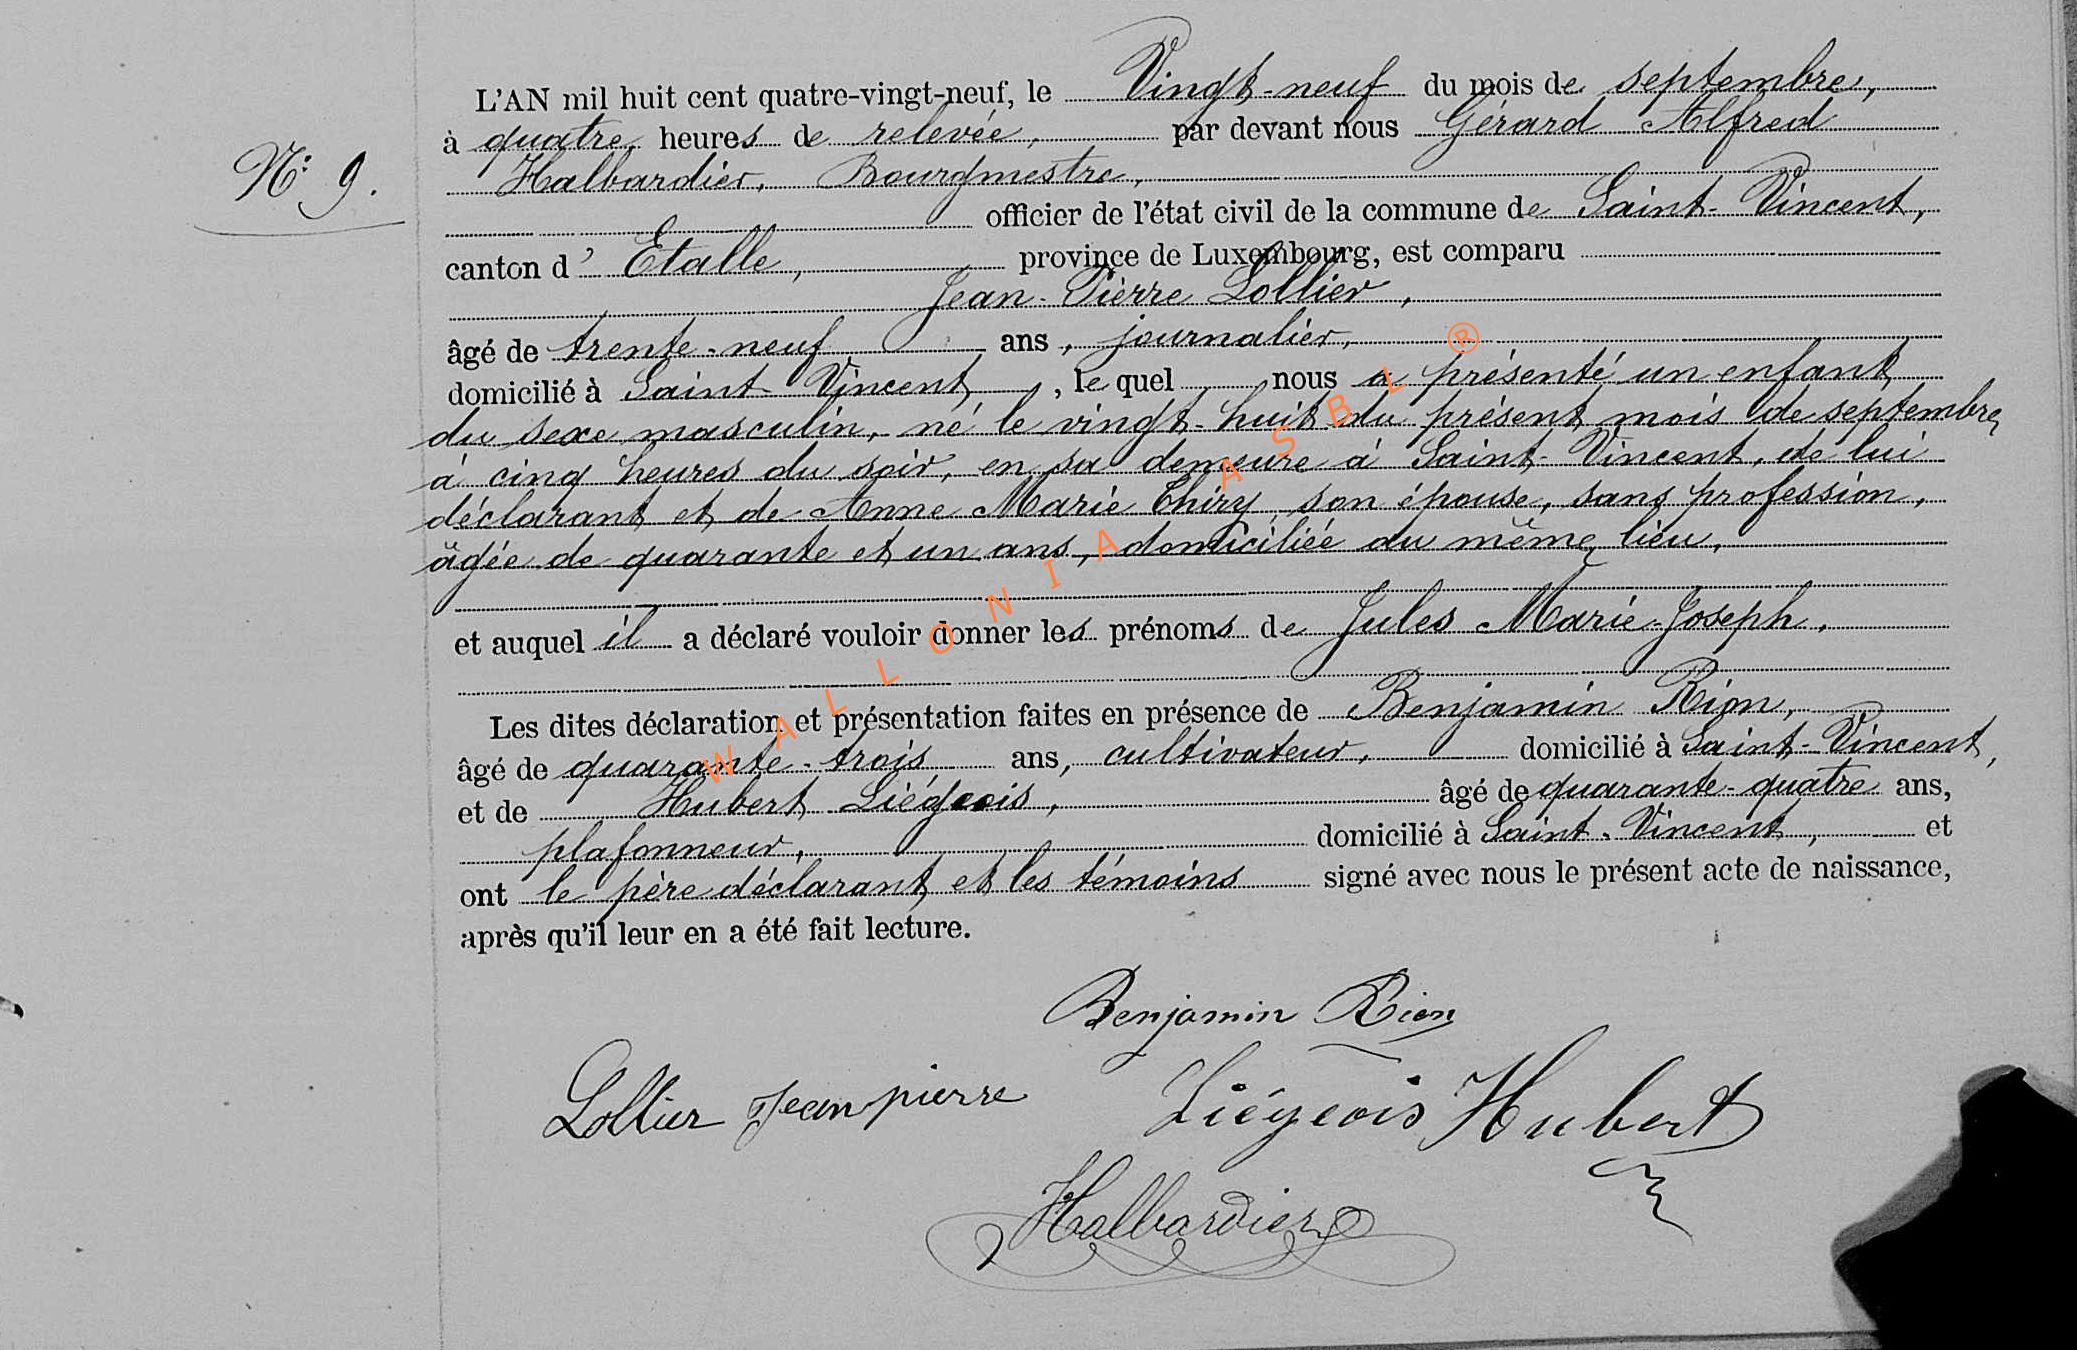 L'AN mil huit cent quatre-vingt-neuf, le Vingt-neuf du mois de septembre,
à quatre heures de relevée, par devant nous Gérard Alfred
N° 9. Halbardier, Bourgmestre,
officier de l'état civil de la commune de Saint-Vincent,
canton d' Etalle, province de Luxembourg, est comparu
Jean-Pierre Lollier,
âgé de trente-neuf ans, journalier,
domicilié à Saint-Vincent, lequel nous a présenté un enfant
du sexe masculin, né le vingt-huit du présent mois de septembre,
à cinq heures du soir, en sa demeure à Saint-Vincent, de lui
déclarant et de Anne Marie Thiry son épouse, sans profession,
âgée de quarante et un ans, domiciliée au même lieu,
et auquel il a déclaré vouloir donner les prénoms de Jules Marie-Joseph.
Les dites déclaration et présentation faites en présence de Benjamin Rion,
âgé de quarante-trois ans, cultivateur, domicilié à Saint-Vincent,
et de Hubert Liégeois, âgé de quarante-quatre ans,
plafonneur, domicilié à Saint-Vincent, et
ont le père déclarant et les témoins signé avec nous le présent acte de naissance,
après qu'il leur en a été fait lecture.
Benjamin Rion
Lollier Jean pierre Liégeois Hubert
Halbardier
WALLONIA ASBL ®